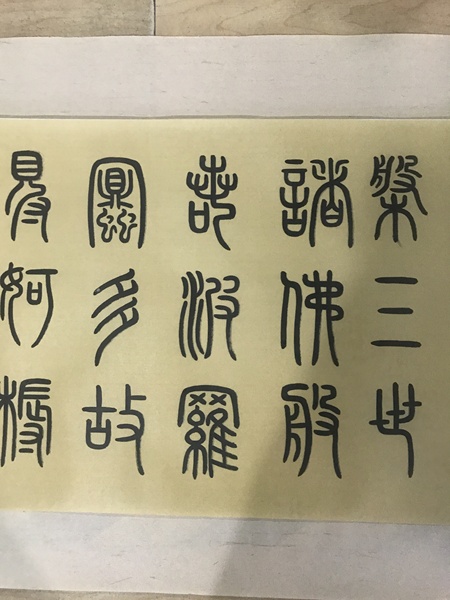 槃三世
諸佛般
若波羅
蜜多故
得阿耨